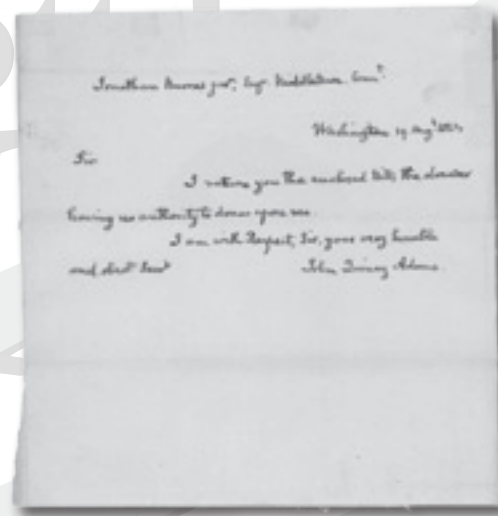 Jonathan Barnes junr. Esqr. Middletown. Connt.
Washington 19 Augt
Sir
I return you the enclosed bill, the drawer
having no authority to draw upon me.
I am with Respect, Sir, your very humble
and obedt Servt John Quincy Adams.